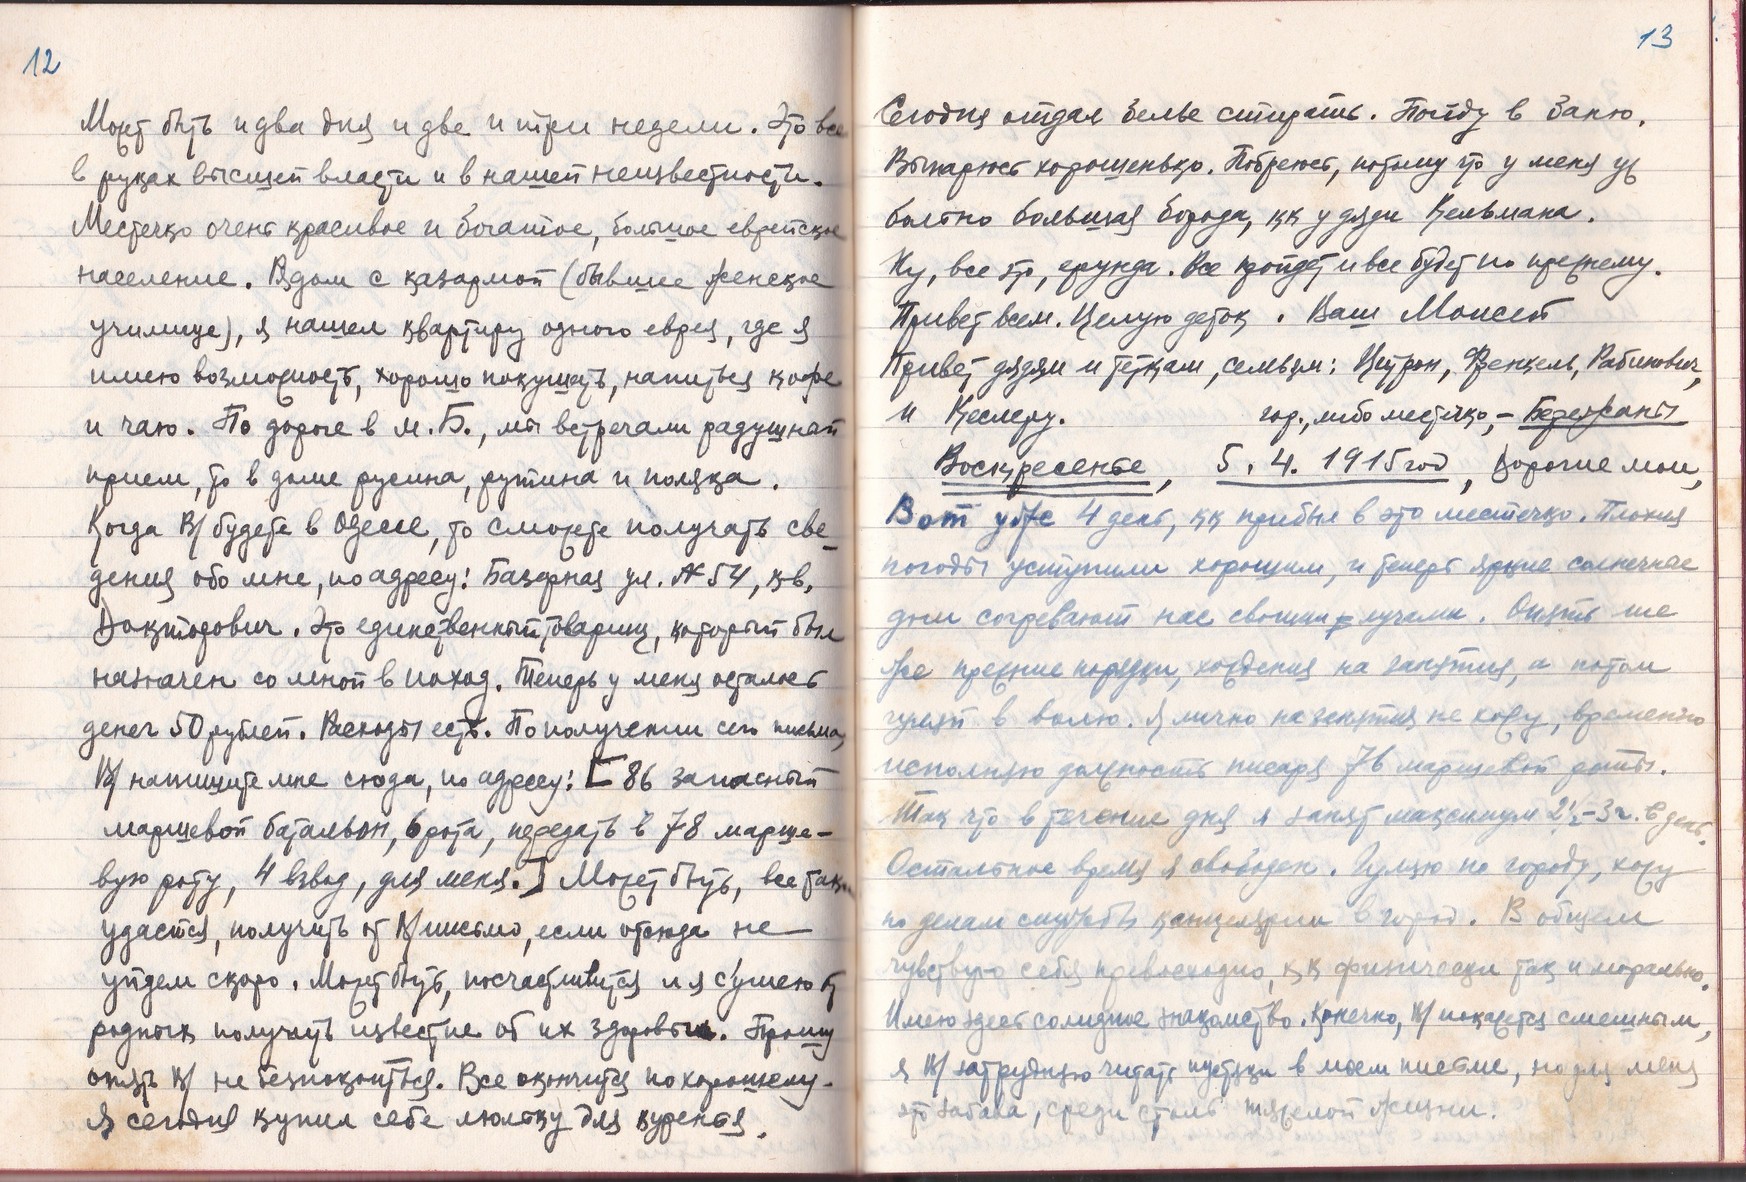 12
Может быть и два дня и две и три недели. Это все
в руках высшей власти и в нашей неизвестности.
Местечко очень красивое и богатое, большое еврейское
население. Рядом с казармой (бывшее женское
училище), я нашел квартиру одного еврея, где я
имею возможность, хорошо покушать, напиться кофе
и чаю. По дороге в м. Б., мы встречали радушный
прием, то в доме русина, рутина и поляка.
Когда В/ будете в Одессе, то сможете получать све-
дения обо мне, по адресу: Базарная ул. № 54, кв.
Докторович. Это единственный товарищ, который был
назначен со мной в поход. Теперь у меня осталось
денег 50 рублей. Расходы есть. По получении сего письма,
В/ напишите мне сюда, по адресу: [86 запасный
маршевой батальон, 6 рота, передать в 78 марше-
вую роту, 4 взвод, для меня.] Может быть, все таки
удастся, получить от В/ письмо, если отсюда не
уйдем скоро. Может быть, посчастливится и я сумею от
родных получить известие об их здоровьи. Прошу
опять В/ не безпокоиться. Все окончится по хорошему.
Я сегодня купил себе люльку для куренья.
13
Сегодня отдал белье стирать. Пойду в баню.
Выпарюсь хорошенько. Побреюсь, потому что у меня уж
больно большая борода, кк у дяди Кельмана.
Ну, все это, ерунда. Все пройдет и все будет по прежнему.
Привет всем. Целую деток. Ваш Моисей
Привет дядям и теткам, семьям: Цитрон, Френкель, Рабинович,
и Кеслеру. гор., либо местечко, – Бережаны
Воскресенье, 5. 4. 1915 год, Дорогие мои,
Вот уже 4 день, кк прибыл в это местечко. Плохия
погоды уступили хорошим, и теперь яркие солнечные
дни согревают нас своими лучами. Опять те
же прежние порядки, хождения на занятия, а потом
гуляй в волю. Я лично на занятия не хожу, временно
исполняю должность писаря 76 маршевой роты.
Так что в течение дня я занят максимум 2½–3 ч. в день.
Остальное время я свободен. Гуляю по городу, хожу
по делам службы канцелярии в город. В общем
чувствую себя превосходно, кк физически так и морально.
Имею здесь солидное знакомство. Конечно, В/ покажется смешным,
я В/ затрудняю читать пустяки в моем письме, но для меня
это забава, среди столь тяжелой жизни.